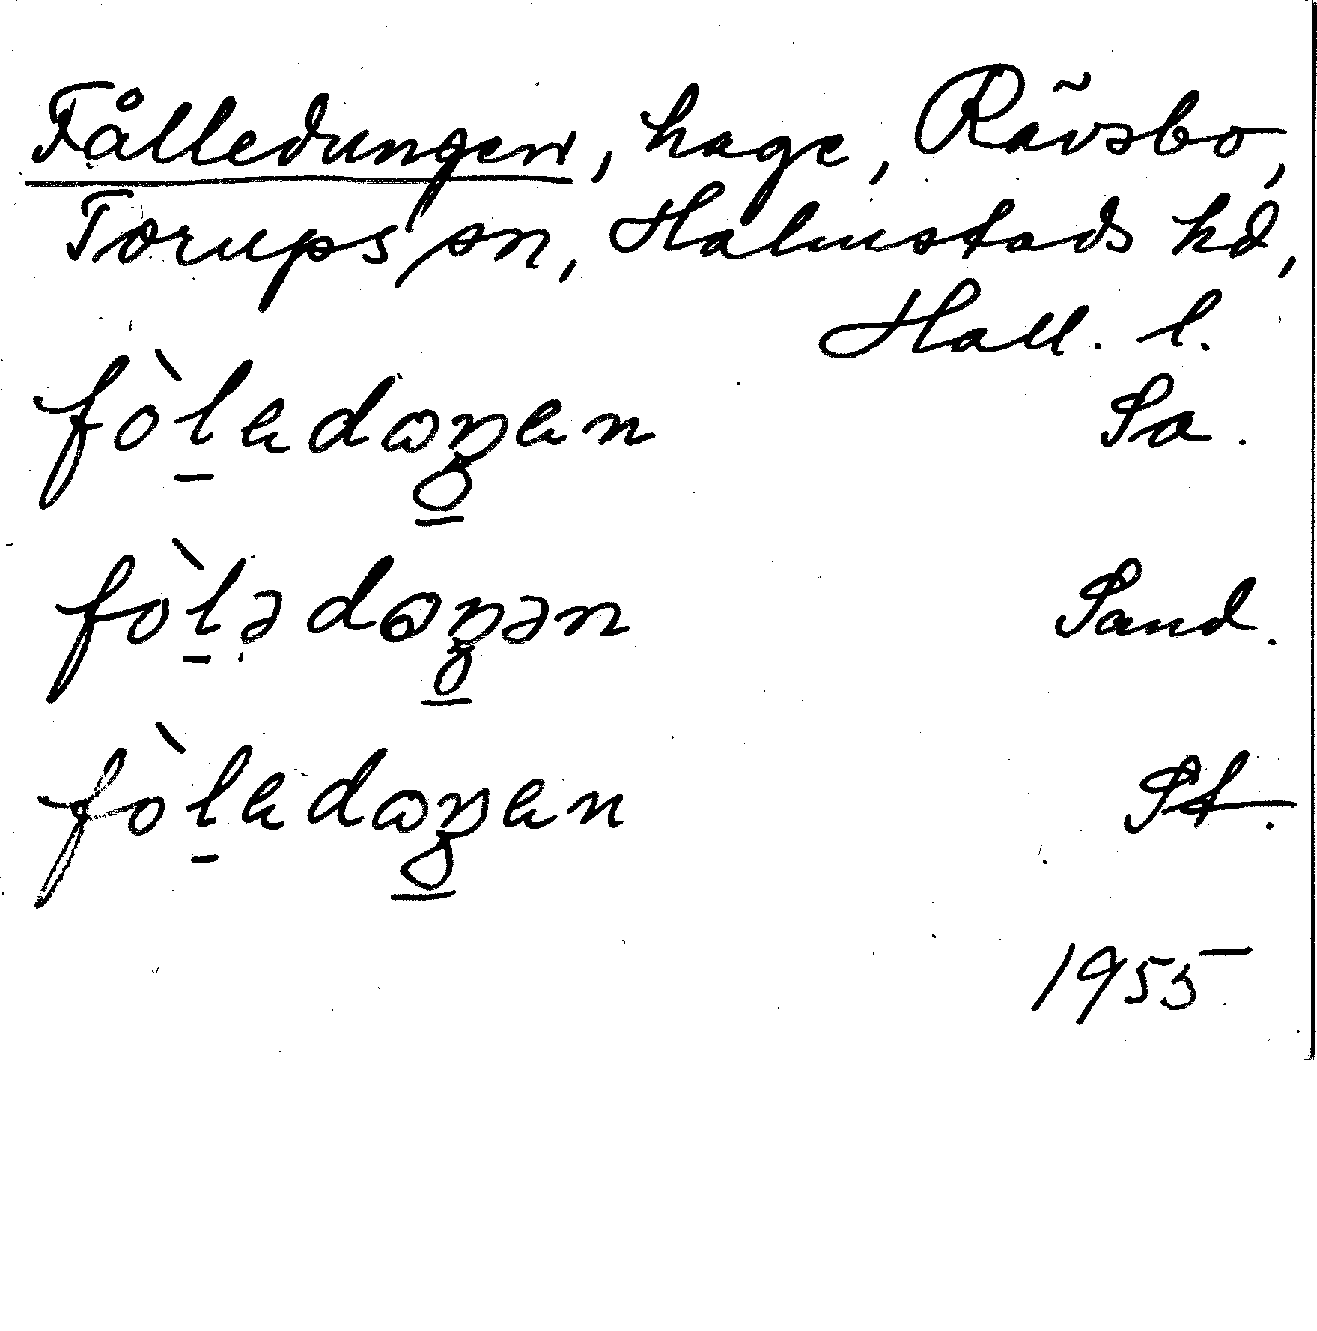 Fålledungen, hage, Rävsbo,
Torups sn, Halmstads hd,
Hall. l.
fò̱leda̱ŋen Sa.
fò̱lədo̱ŋən Sand.
fò̱ledo̱ŋen St.
1955